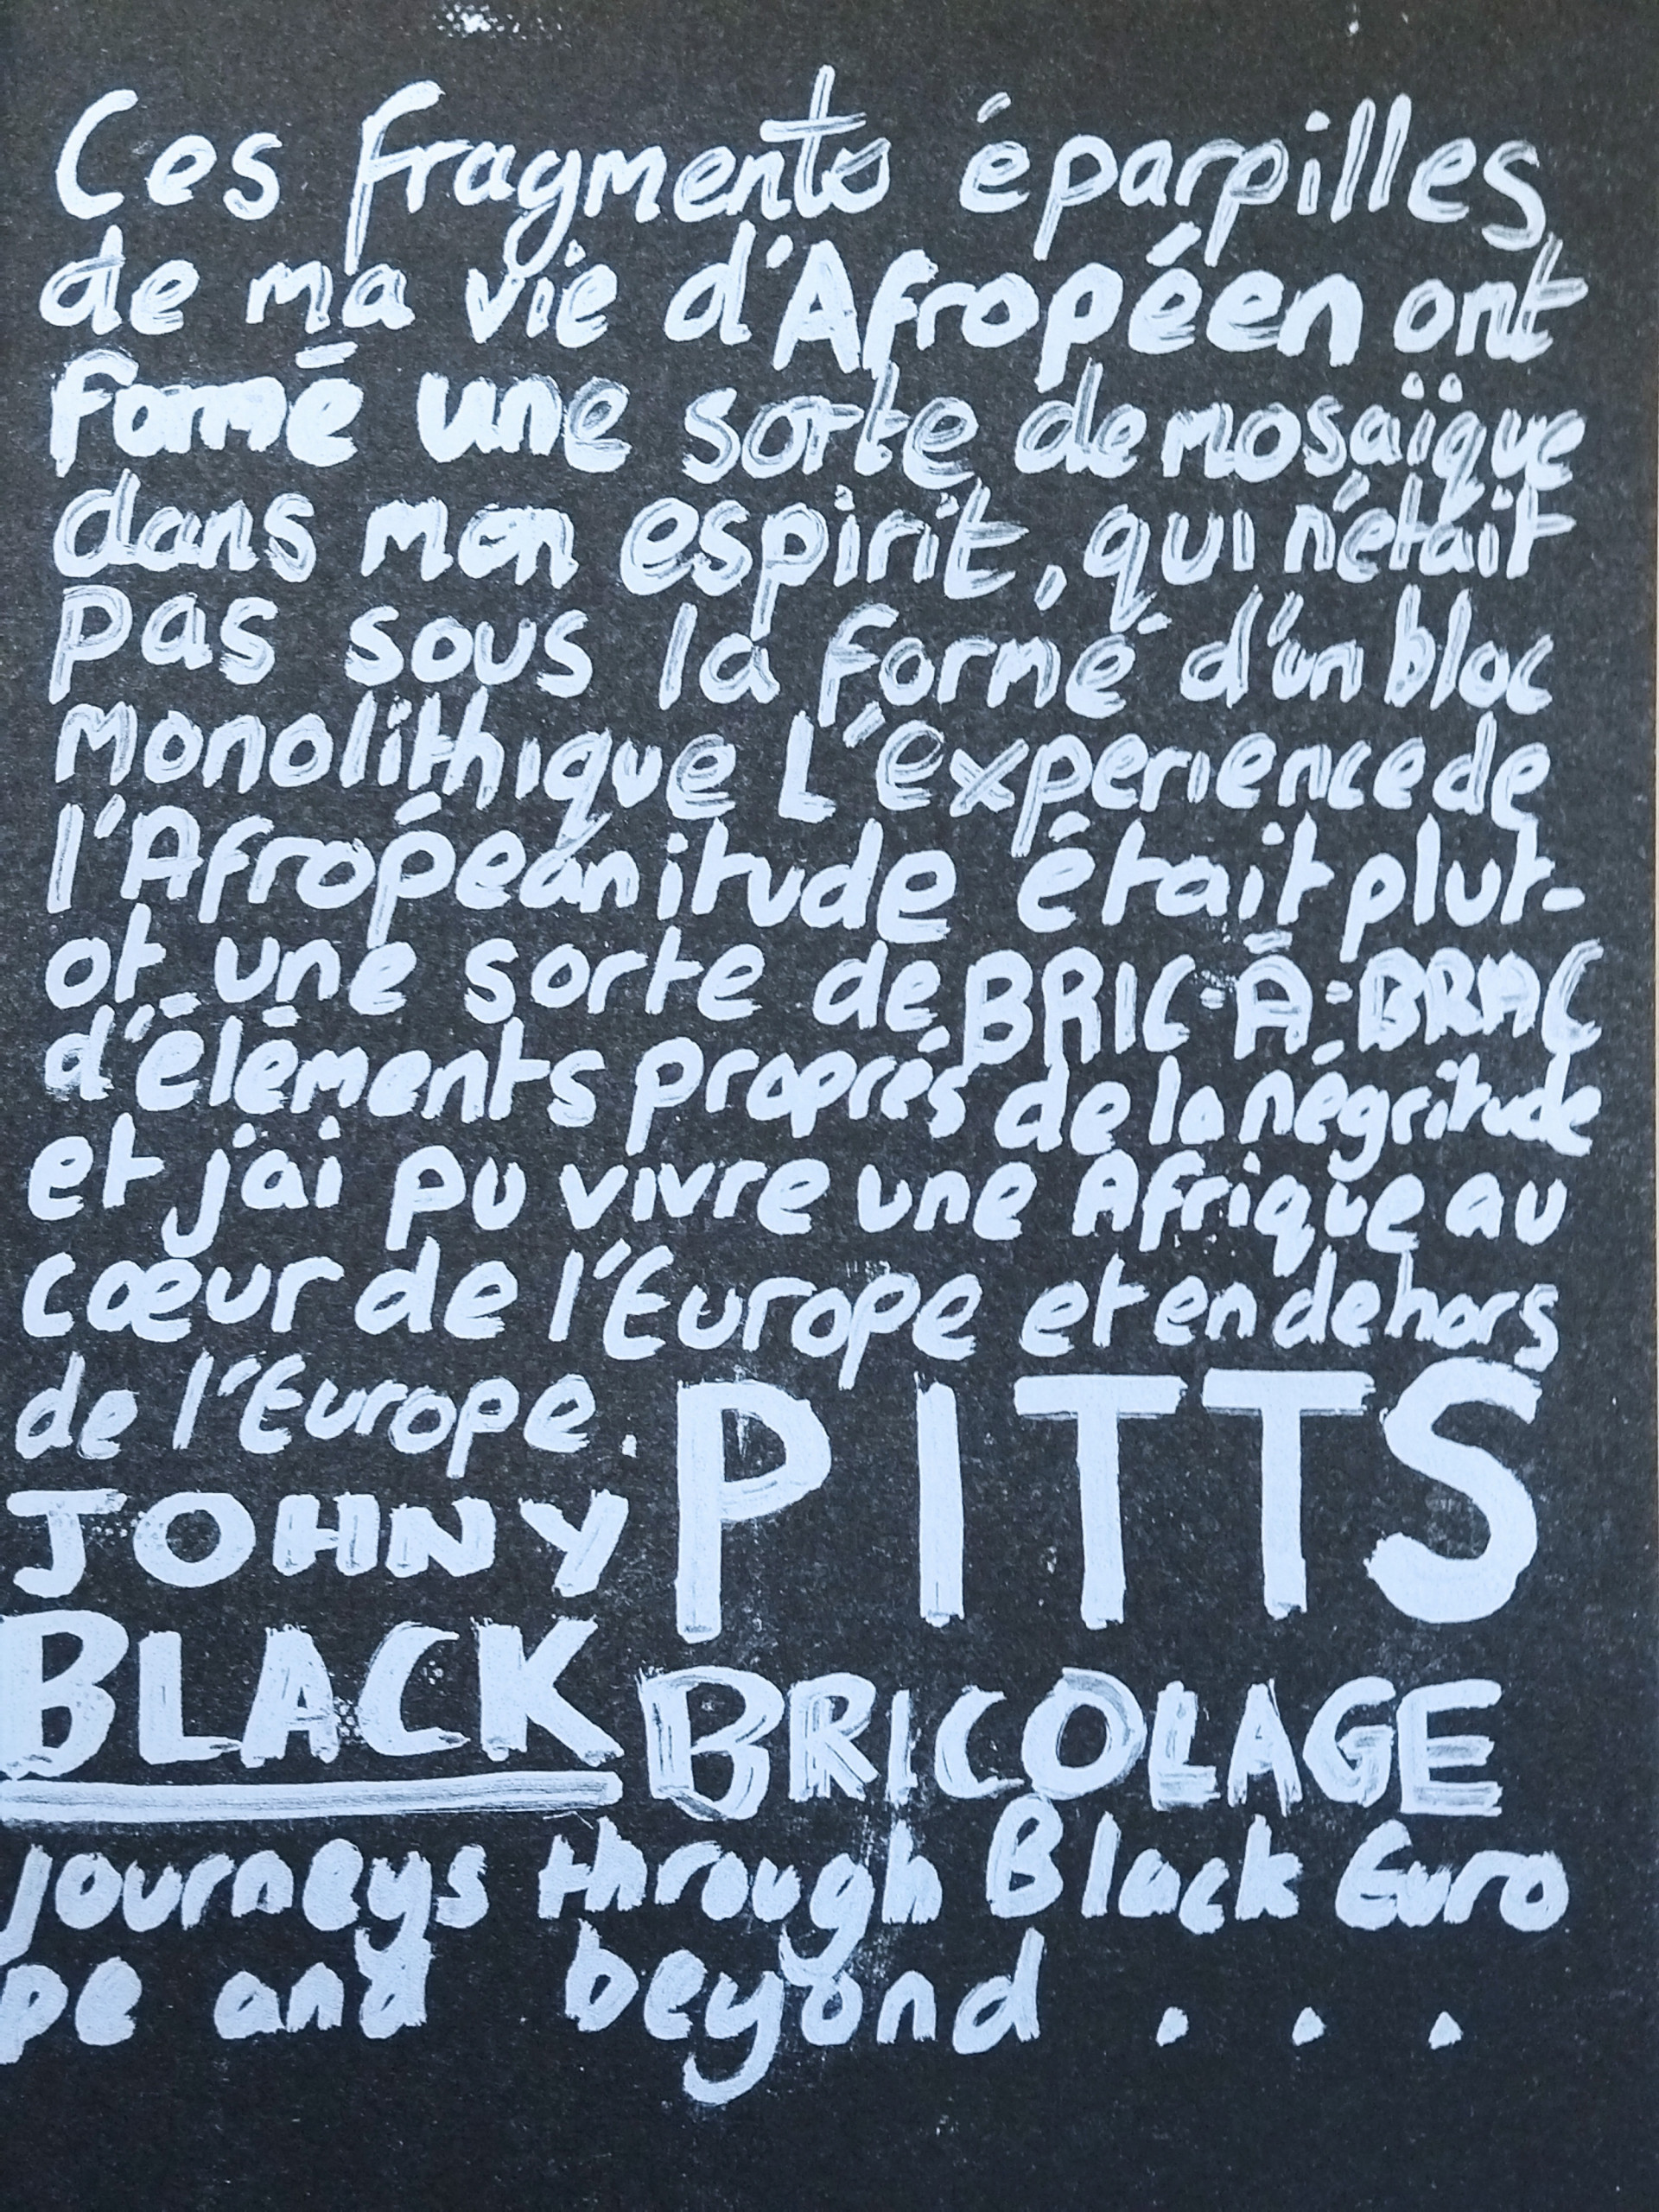 Ces fragments éparpilles
de ma vie d'Afropéen ont
formé une sorte de mosaïque
dans mon espirit, qui n'était
pas sous la formé d'un bloc
monolithique L'éxperience de
l'Afropéanitude était plut-
ot une sorte de BRIC-À-BRAC
d'éléments propres de la négritude
et j'ai pu vivre une Afrique au
cœur de l'Europe et en dehors
de l'Europe. PITTS
JOHNY
BLACK BRICOLAGE
journeys through Black Euro
pe and beyond . . .